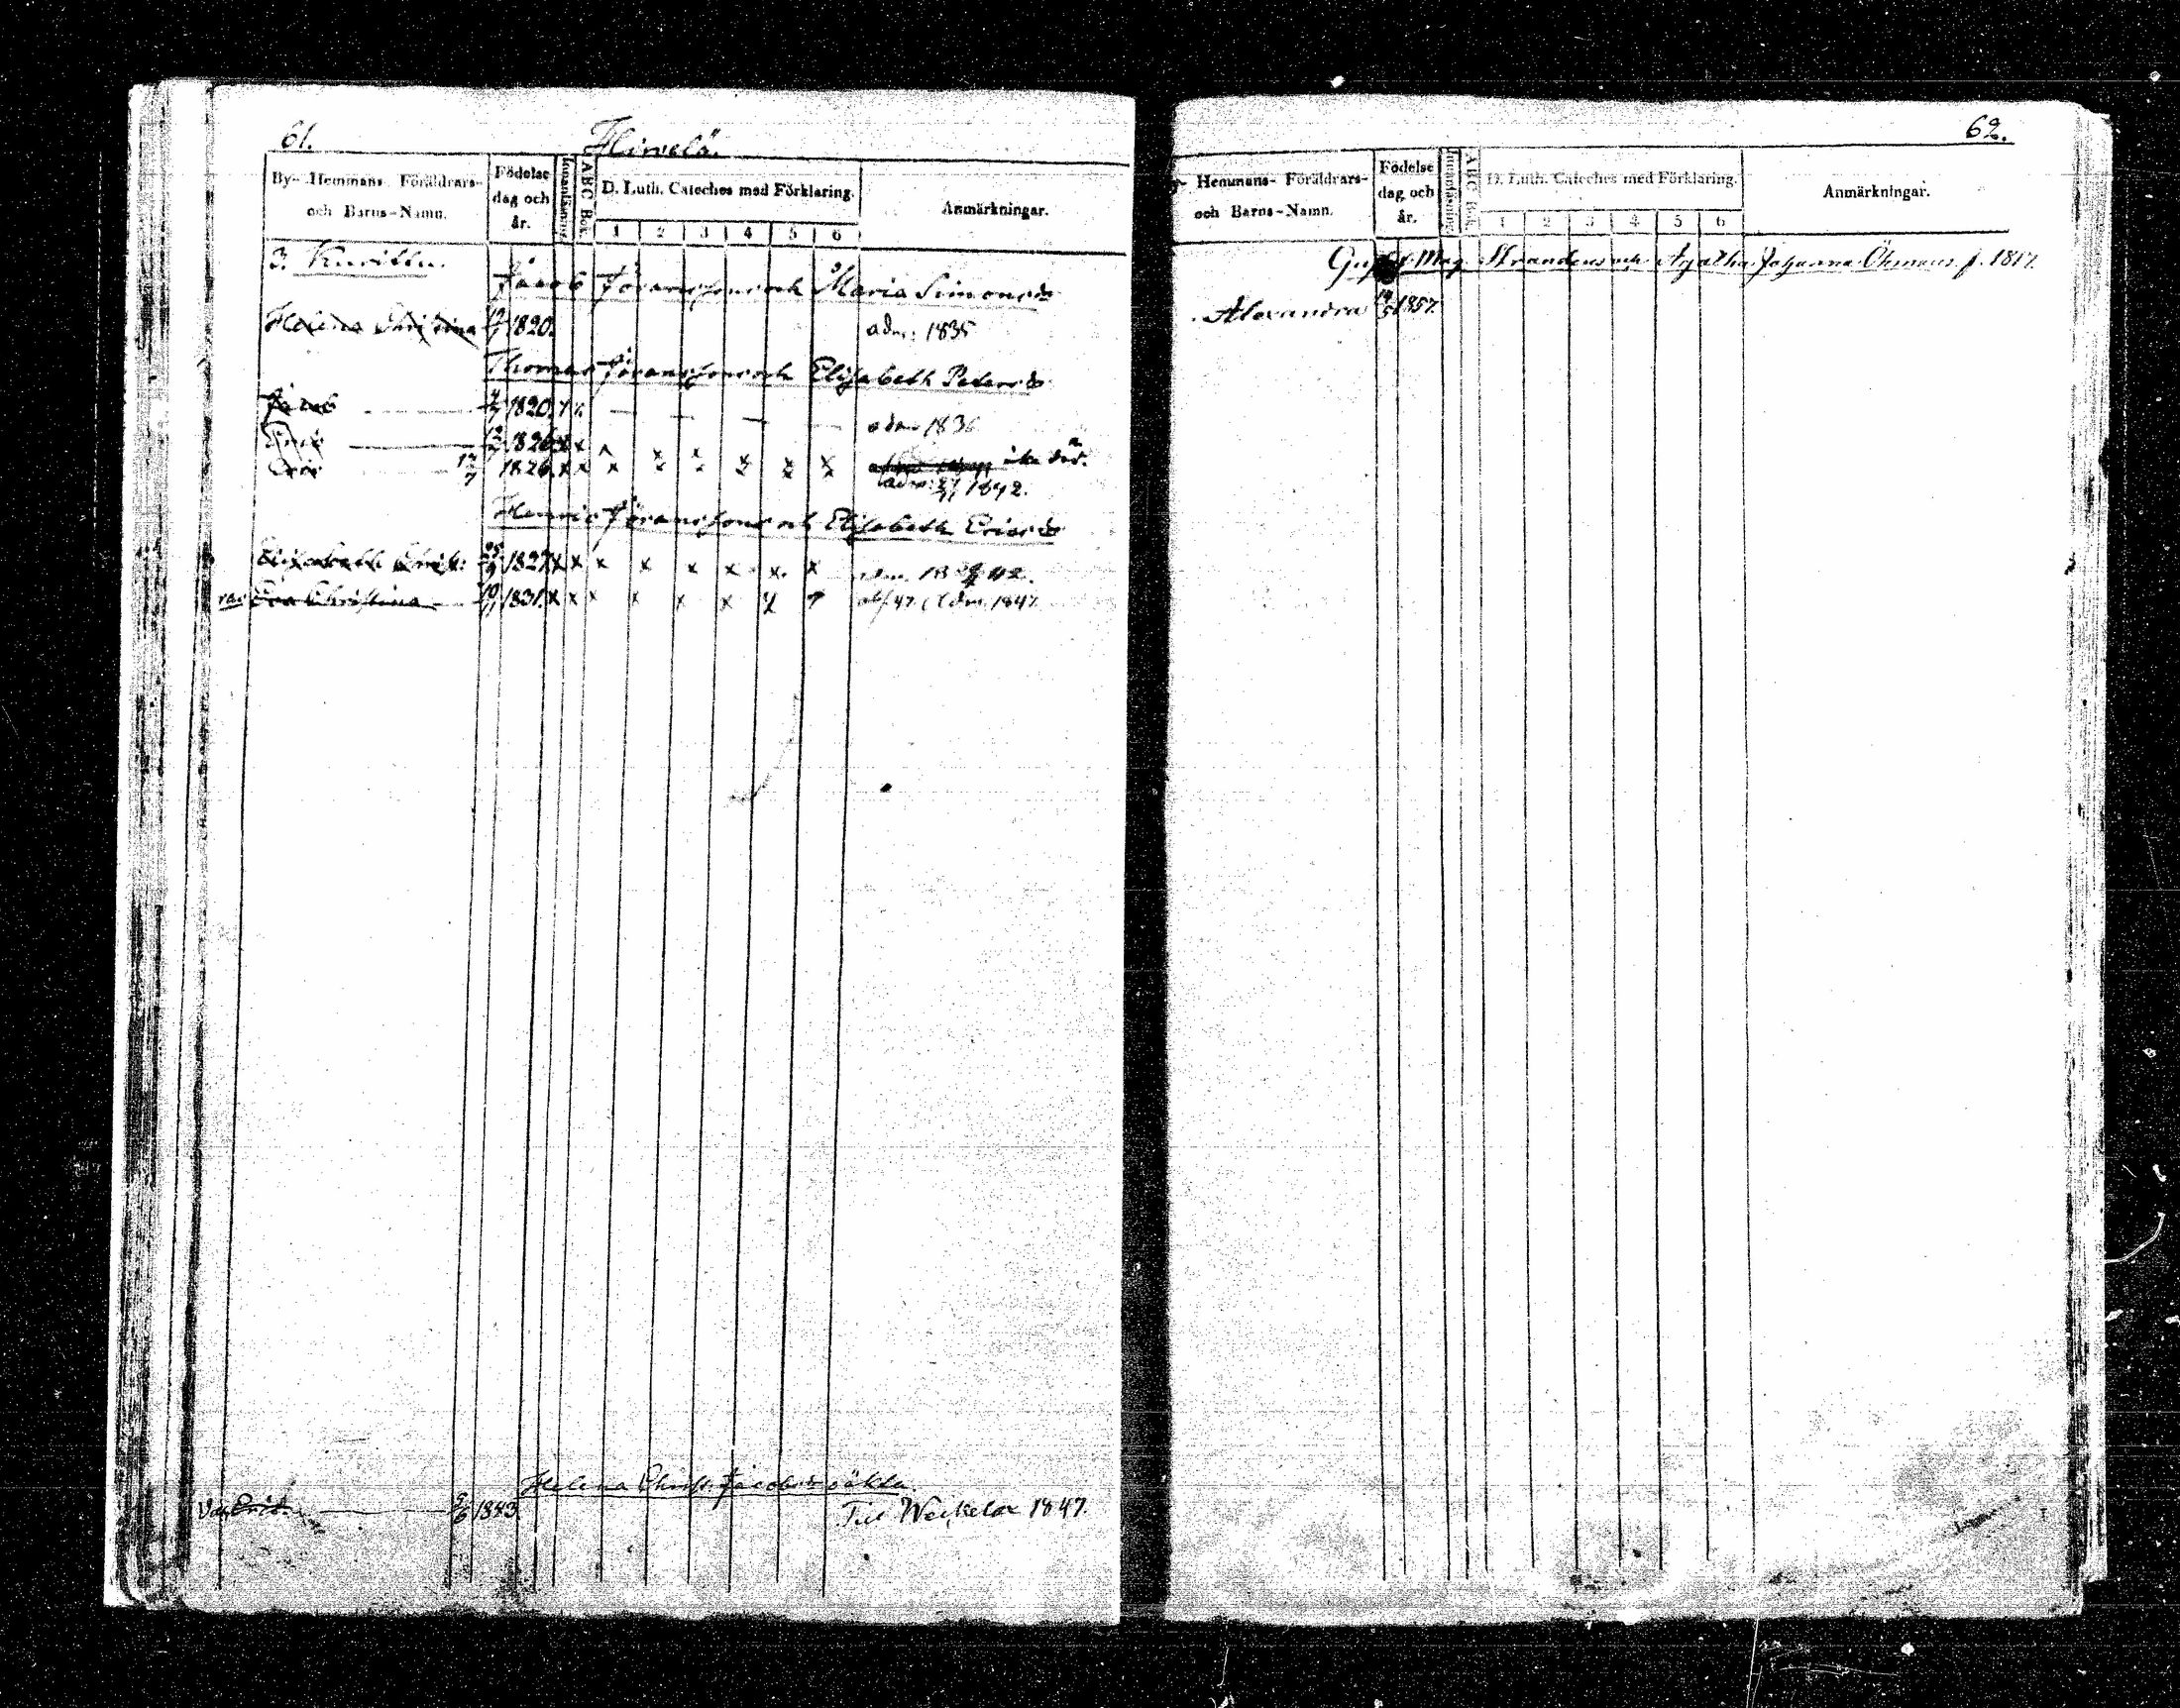 61.
Hirvelä.
By- Hemmans Föräldrars-
och Barns-Namn.
Födelse
dag och
år.
Innanläsning.
ABC Bok.
D. Luth. Cateches med Förklaring.
1 2 3 4 5 6
Anmärkningar.
3.
Jacob Jöranssons och Maria Simonsdr
Helena Christina 1820. adm: 1835
Thomas Jöranssons och Elisabeth Petersdr
Jacob 1820. x x — — — — adm 1836
Eric 1826 x x x x x x x x
Eric 12/7 1826. x x x x x x x x
adm: 1842.
Henric Jöranssons och Elisabeth Ericsdr
Elisabeth Christ: 1827 x x x x x x x x 42.
Eva Christina 1831. x x x x x x adm. 1847.
Helena Christ. Jacobsdr oäkta.
Eric. 1843. Till Weikkola 1847.
62.
Hemmans- Föräldrars-
och Barns-Namn.
Födelse
dag och
år.
Innanläsning.
ABC Bok.
D. Luth. Cateches med Förklaring.
1 2 3 4 5 6
Anmärkningar.
Mag. Strandens och Agatha Johanna Öhmans f. 1817.
Alexandra 1857.